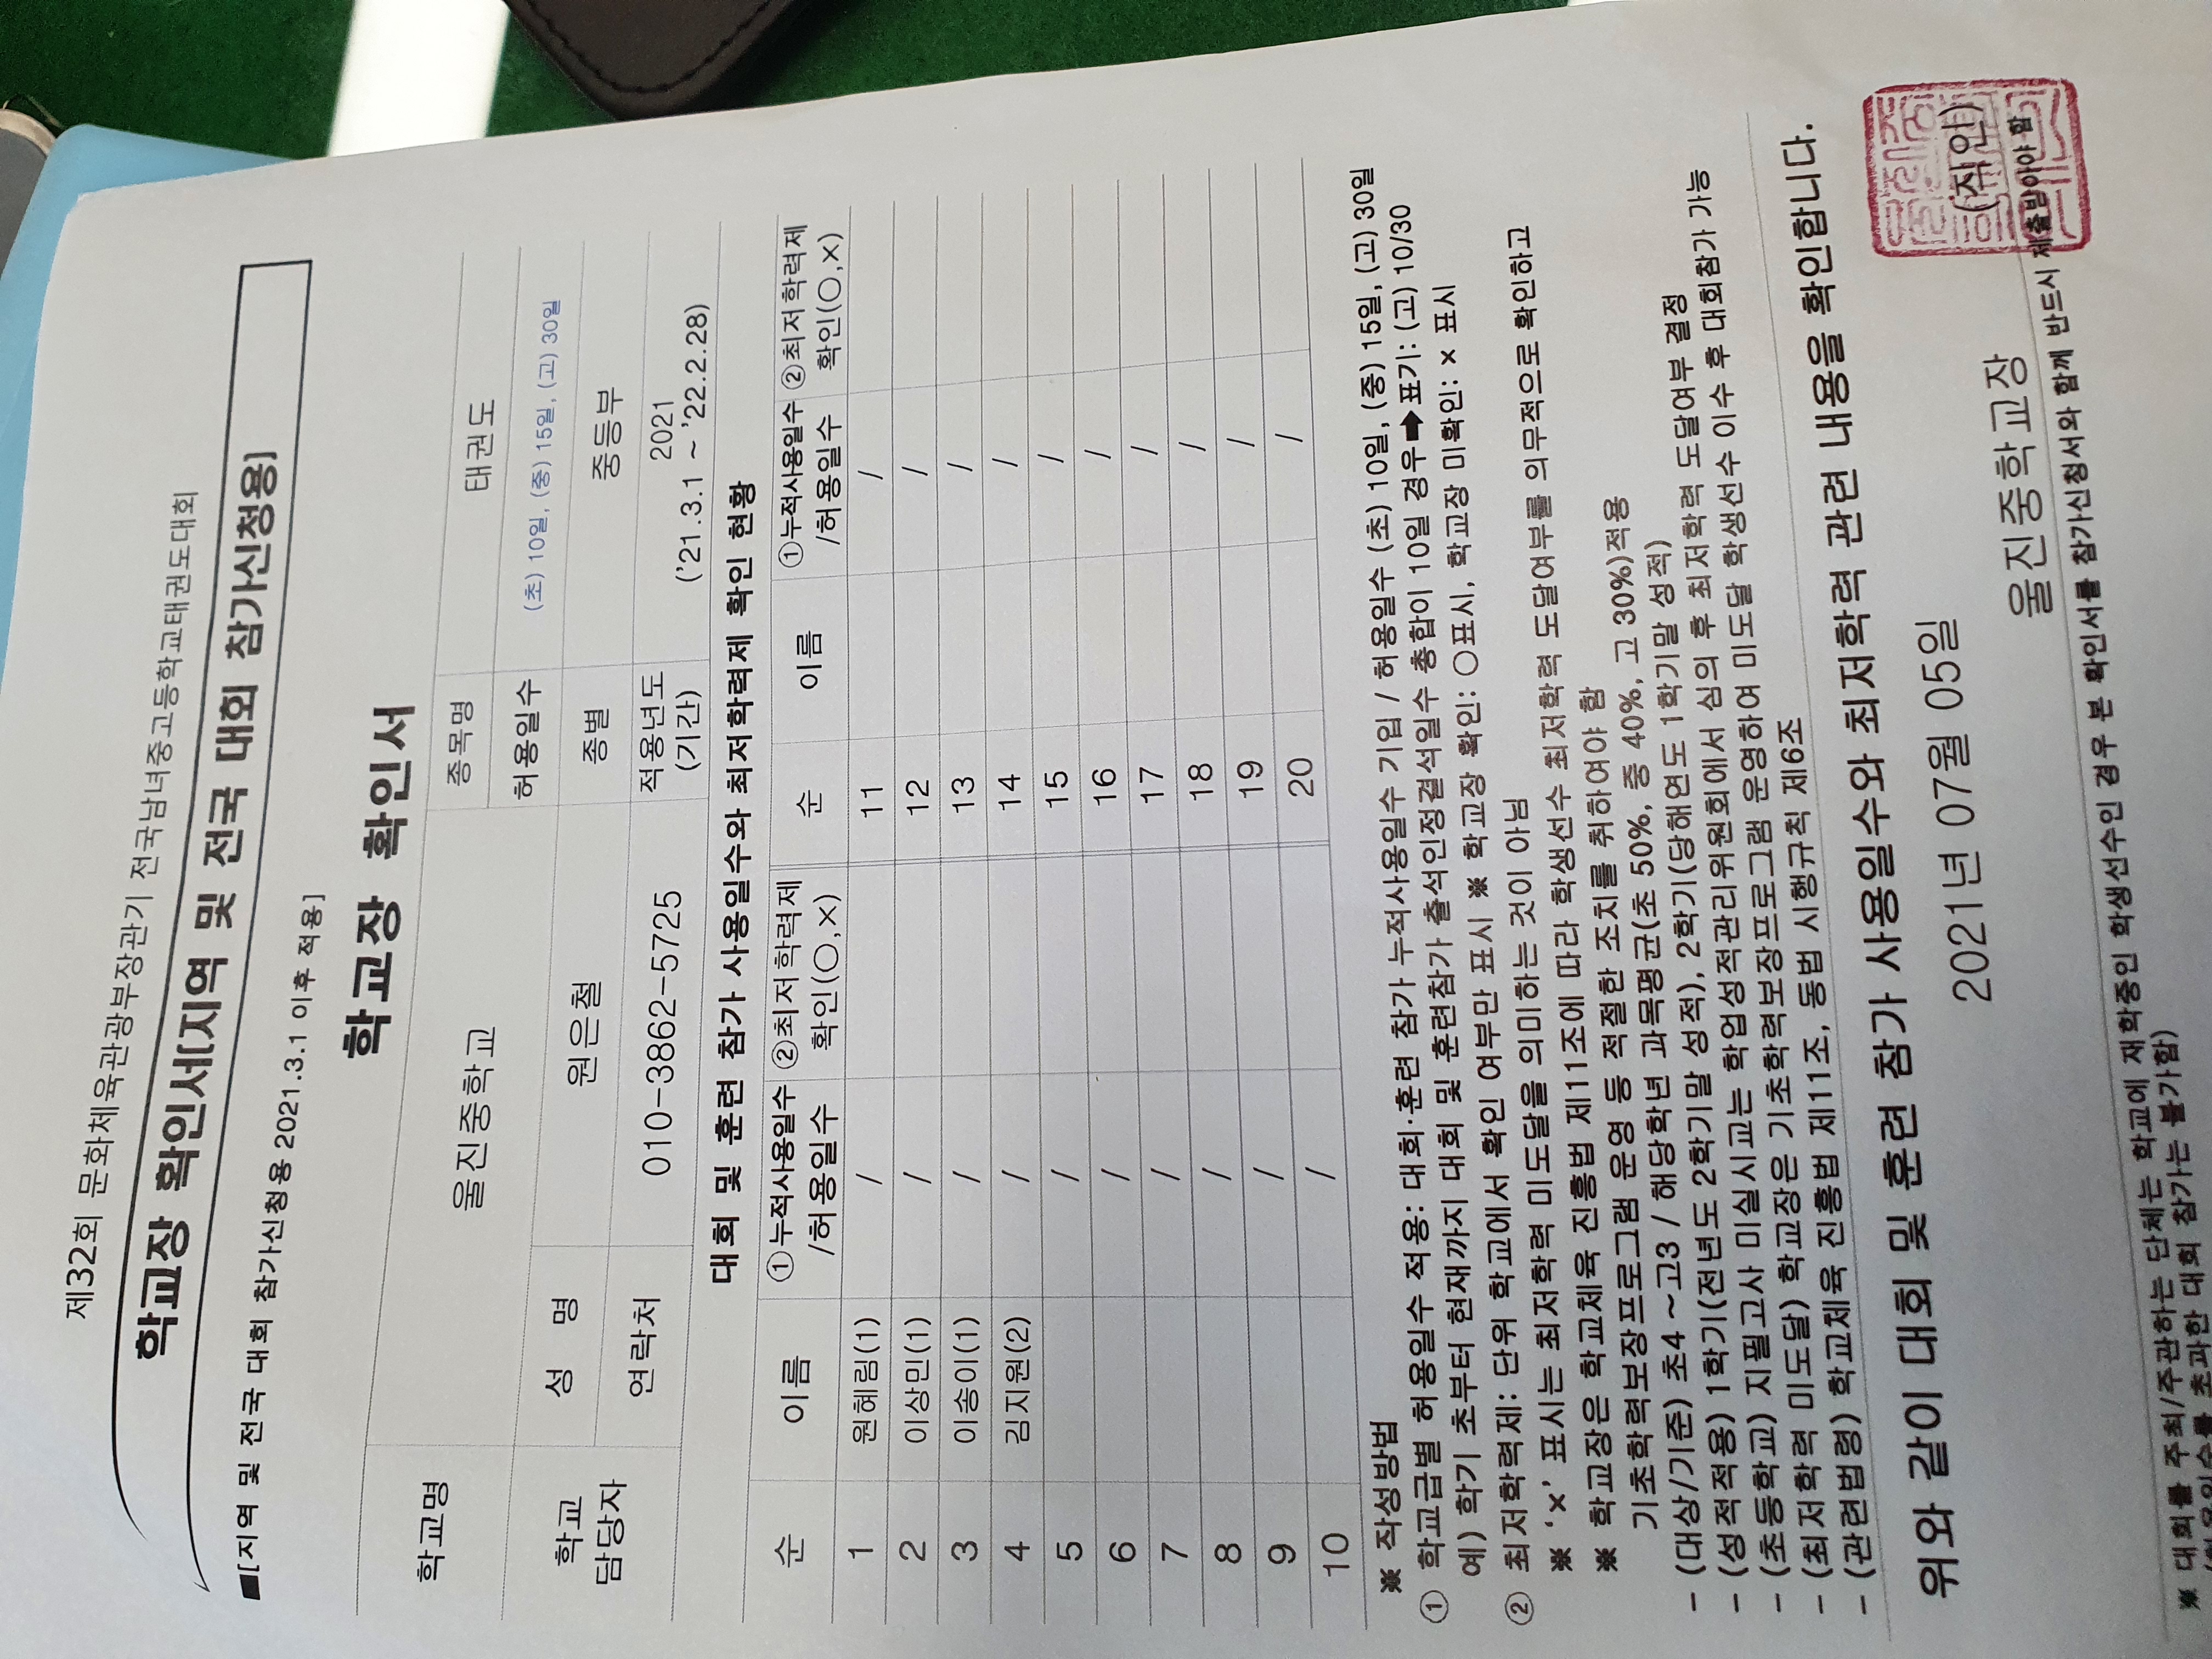 제32회 문화체육관광부장관기 전국남녀중고등학교태권도대회
학교장 확인서(지역 및 전국 대회 참가신청용)
■[지역 및 전국 대회 참가신청용 2021.3.1 이후 적용]
학교장 확인서
학교명 울진중학교 종목명 태권도
허용일수 (초) 10일, (중) 15일, (고) 30일
학교 담당자 성 명 원은철 종별 중등부
연락처 010-3862-5725 적용년도 (기간) 2021 ('21.3.1 ~ '22.2.28)
대회 및 훈련 참가 사용일수와 최저학력제 확인 현황
순 이름 ①누적사용일수 /허용일수 ②최저학력제 확인(○,×) 순 이름 ①누적사용일수 /허용일수 ②최저학력제 확인(○,×)
1 원혜림(1) / 11 /
2 이상민(1) / 12 /
3 이송이(1) / 13 /
4 김지원(2) / 14 /
5 / 15 /
6 / 16 /
7 / 17 /
8 / 18 /
9 / 19 /
10 / 20 /
※ 작성방법
① 학교급별 허용일수 적용: 대회·훈련 참가 누적사용일수 기입 / 허용일수 (초) 10일, (중) 15일, (고) 30일
예) 학기 초부터 현재까지 대회 및 훈련참가 출석인정결석일수 총합이 10일 경우➡표기: (고) 10/30
② 최저학력제: 단위 학교에서 확인 여부만 표시 ※ 학교장 확인: ○표시, 학교장 미확인: × 표시
※ '×' 표시는 최저학력 미도달을 의미하는 것이 아님
※ 학교장은 학교체육 진흥법 제11조에 따라 학생선수 최저학력 도달여부를 의무적으로 확인하고
기초학력보장프로그램 운영 등 적절한 조치를 취하여야 함
- (대상/기준) 초4 ~고3 / 해당학년 과목평균(초 50%, 중 40%, 고 30%)적용
- (성적적용) 1학기(전년도 2학기말 성적), 2학기(당해연도 1학기말 성적)
- (초등학교) 지필고사 미실시교는 학업성적관리위원회에서 심의 후 최저학력 도달여부 결정
- (최저학력 미도달) 학교장은 기초학력보장프로그램 운영하여 미도달 학생선수 이수 후 대회참가 가능
- (관련법령) 학교체육 진흥법 제11조, 동법 시행규칙 제6조
위와 같이 대회 및 훈련 참가 사용일수와 최저학력 관련 내용을 확인합니다.
2021년 07월 05일
울진중학교장 (직인)
※ 대회를 주최/주관하는 단체는 학교에 재학중인 학생선수인 경우 본 확인서를 참가신청서와 함께 반드시 제출받아야 함
(허용일수를 초과한 대회 참가는 불가함)